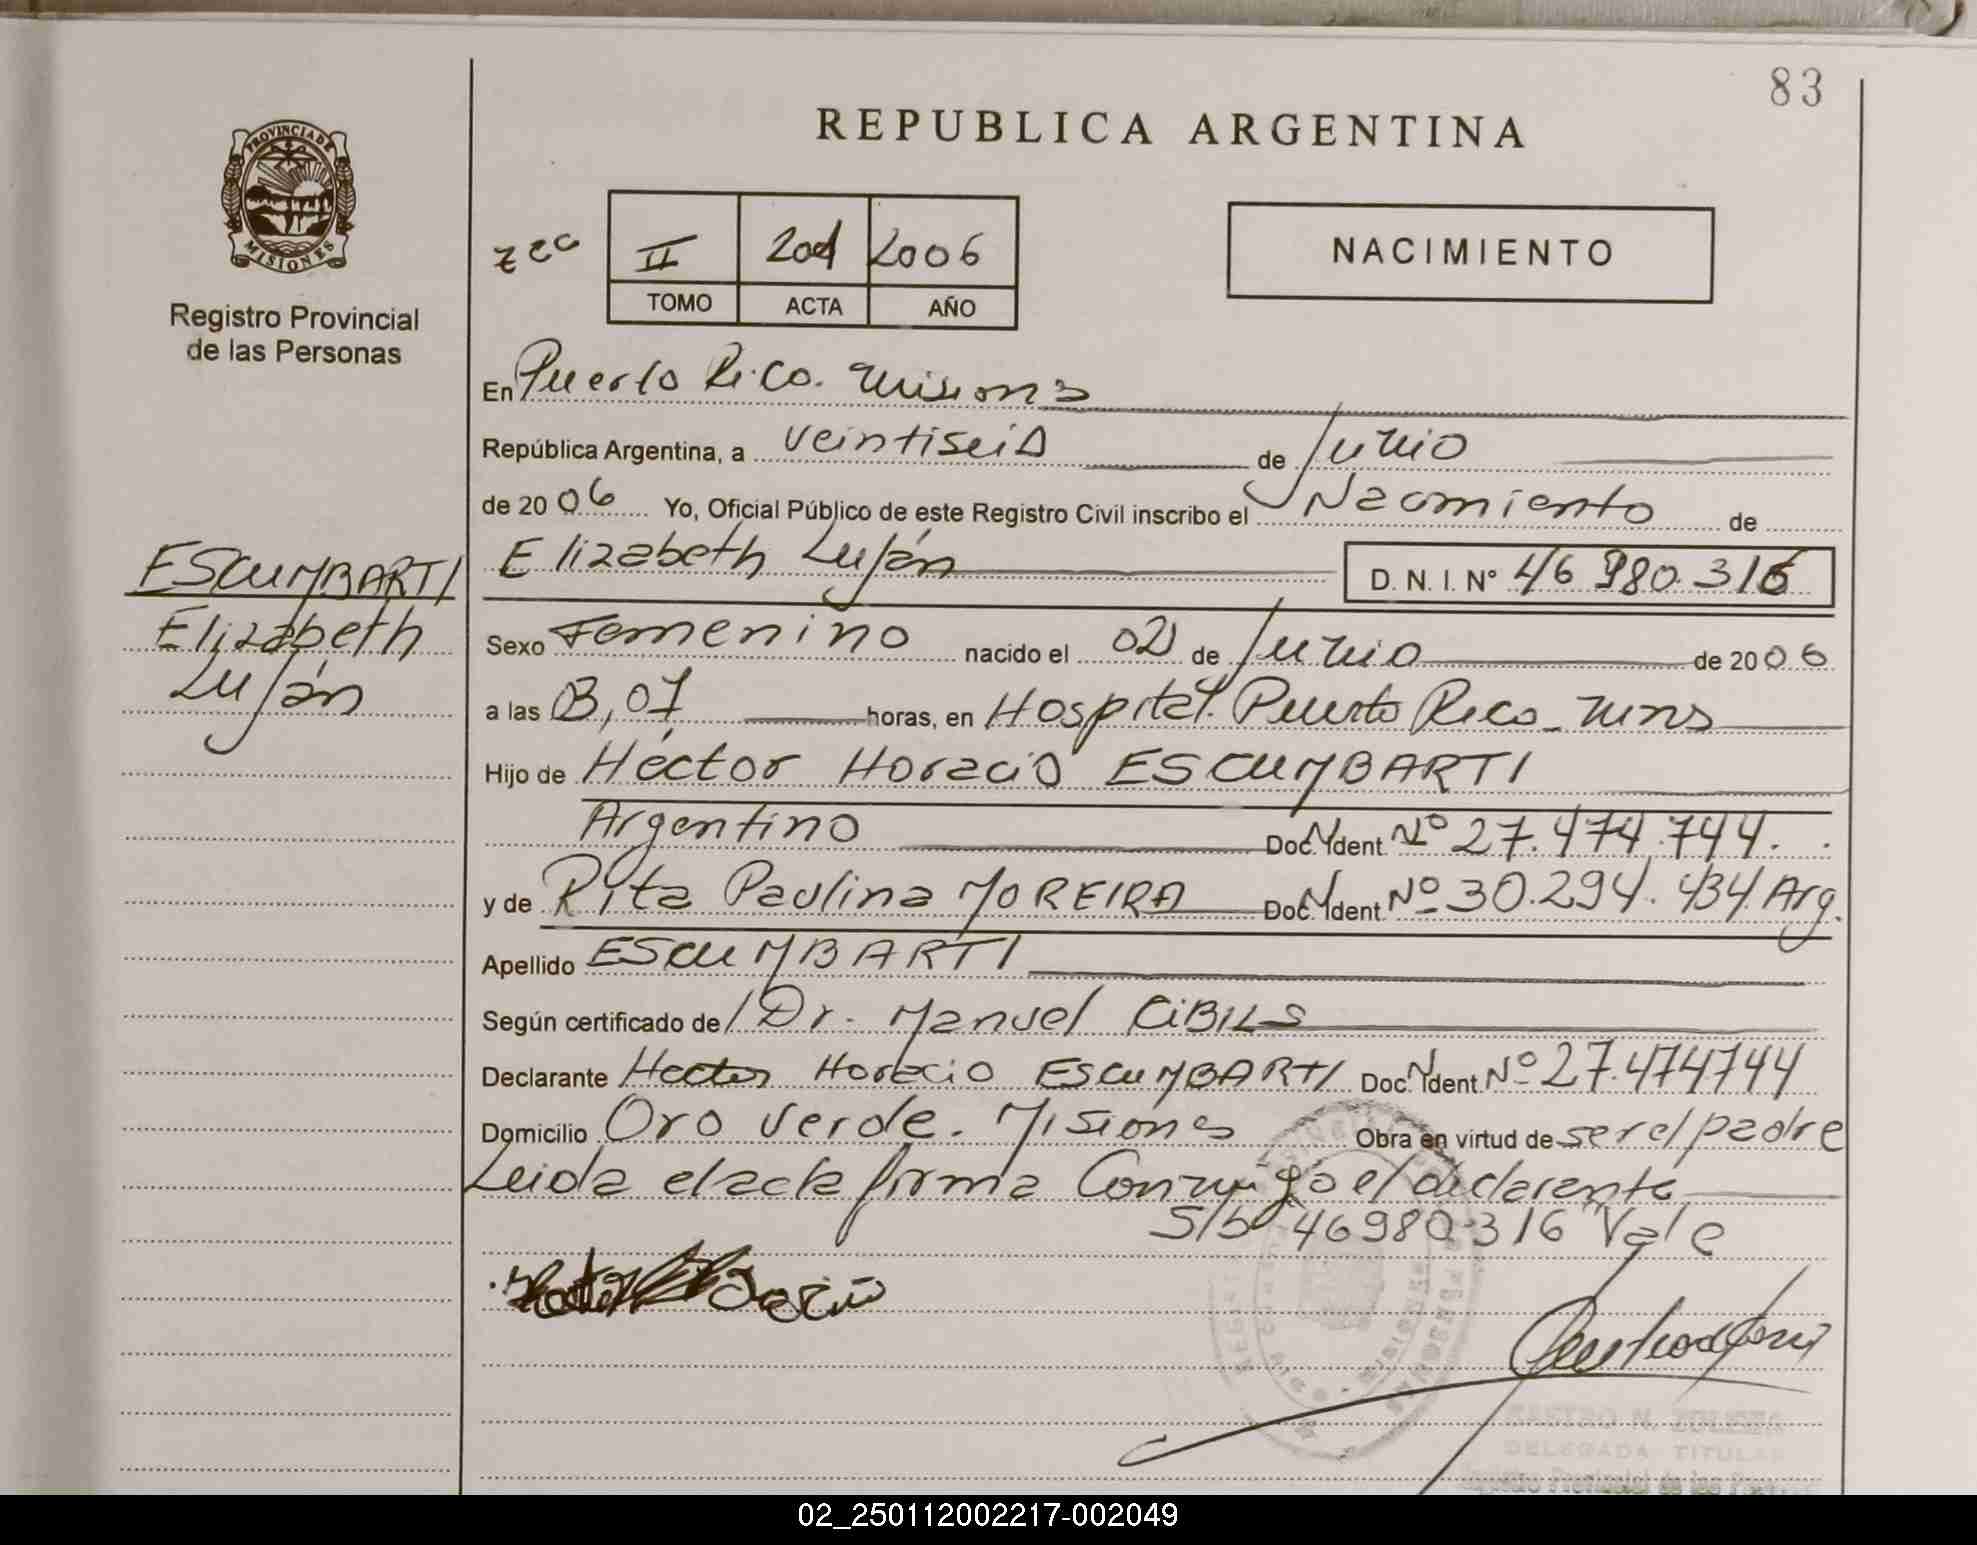 83
REPUBLICA ARGENTINA
PROVINCIA DE
MISIONES
Registro Provincial
de las Personas
II 2006
TOMO ACTA AÑO
NACIMIENTO
En Puerto Rico. Misiones
República Argentina, a veintiseis de Junio
de 2006 Yo, Oficial Público de este Registro Civil inscribo el Nacimiento de
Elizabeth Luján D. N. I. N° 46 980.316
ESCUMBARTI
Elizabeth
Luján
Sexo Femenino nacido el 02 de Junio de 2006
a las horas, en Hospital Puerto Rico - Mnes
Hijo de Héctor Horacio ESCUMBARTI
Argentino Doc. Ident. N° 27.474.744.
y de Rita Paulina MOREIRA Doc. Ident. N° 30.294.434 Arg.
Apellido ESCUMBARTI
Según certificado de Dr. Manuel CIBILS
Declarante Hector Horacio ESCUMBARTI Doc. Ident. N° 27.474744
Domicilio Oro Verde. Misiones Obra en virtud de ser el padre
Leida el acta firma conmigo el declarante
S/b 46980316 "Vale
DELEGADA TITULAR
Registro Provincial de las
02_250112002217-002049